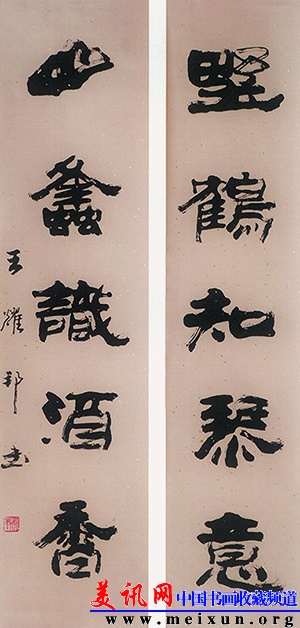 墅鶴知琴意
山蠭識酒香
王耀邦書
美讯网 中国书画收藏频道
www.meixun.org